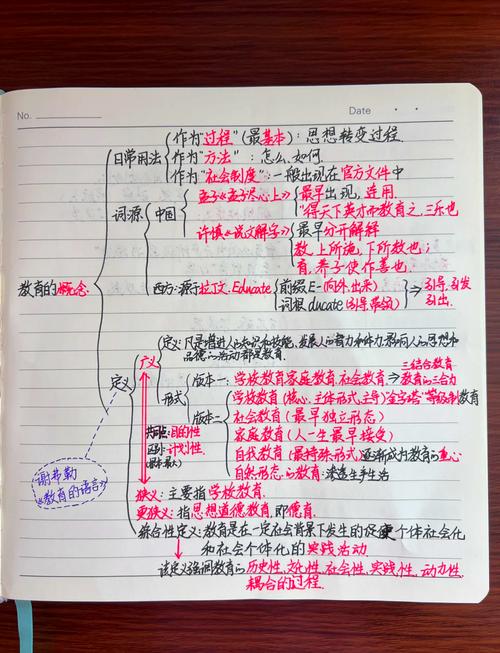 No.
Date
作为"过程"(最基本):思想转变过程.
日常用法 作为"方法":怎么、如何.
作为"社会制度":一般出现在官方文件中
孟子《孟子·尽心上》 最早出现,连用.
"得天下英才而教育之,三乐也
词源 中国
许慎《说文解字》 最早分开解释
教,上所施,下所效也;
育,养子使作善也.
教育的概念.
西方:源于拉丁文.Educate 前缀E-(向外、出来) 词根ducate(引导、带领) 引导、引发 引出.
定义:凡是增进人的知识和技能、发展人的智力和体力、影响人的思想和
品德的活动都是教育.
广义
三结合教育
版本一:学校教育 家庭教育 社会教育 教育的三合力
形式
学校教育(核心、主体形式、主导)"金字塔"等级制教育
版本二 社会教育(最早独立形态)
定义
共同点:目的性
家庭教育(人一生最早接受)
区别:计划性
自我教育(最特殊形式)逐渐成为教育的重心
自然形态的教育:渗透生产生活
谢弗勒
《教育的语言》
狭义:主要指学校教育.
更狭义:指思想道德教育,即德育.
综合性定义:教育是在一定社会背景下发生的促使个体社会化
和社会个体化的实践活动.
该定义强调教育的历史性、文化性、社会性、实践性、动力性.
耦合的过程.